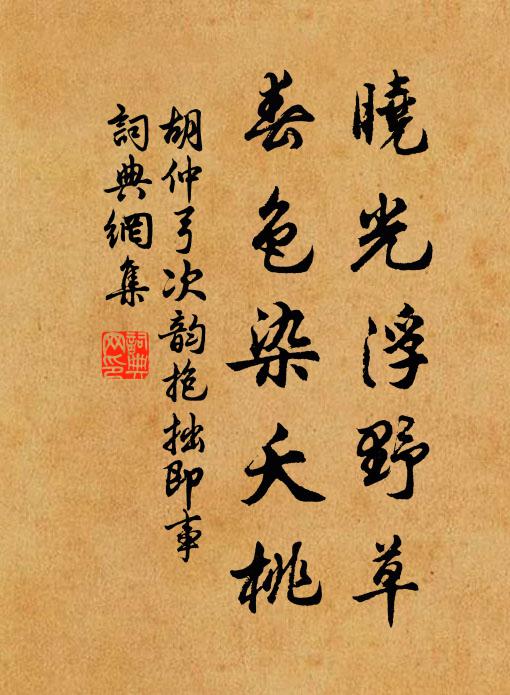 曉光浮野草
春色染夭桃
胡仲弓次韵抱拙即事
詞典網集
詞典
网印